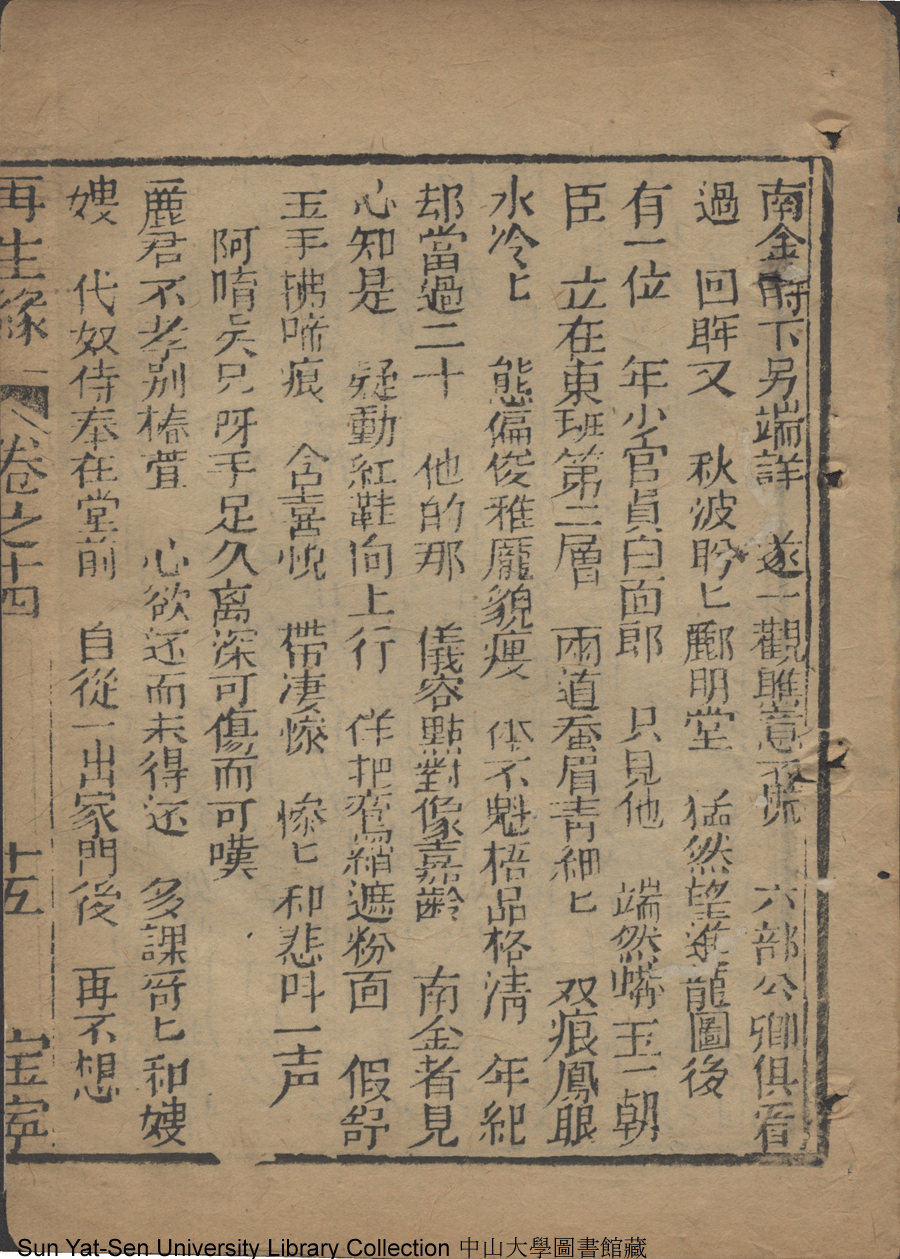 南金時下另端詳　遂一觀瞧意不慌　六部公卿俱看
過　回眸又　秋波盻匕酈明堂　猛然望進龍圖後
有一位　年少官員白面郎　只見他　端然蟒玉一朝
臣　立在東班第二層　兩道蚕眉青細匕　双痕鳳眼
水冷匕　態偏俊雅龐貌瘦　体不魁梧品格清　年紀
却當過二十　他的那　儀容點對像嘉齡　南金者見
心知是　疑動紅鞋向上行　佯把鸞綃遮粉面　假舒
玉手拂啼痕　含喜悅　帶凄慘　慘匕和悲呌一声
阿唷矣兄呀手足久离深可傷而可嘆
麗君不孝別椿萱　心欲还而未得还　多課哥匕和嫂
嫂　代奴侍奉在堂前　自從一出家門後　再不想
再生緣　卷之十四　十五　宝寧
Sun Yat-Sen University Library Collection 中山大學圖書館藏